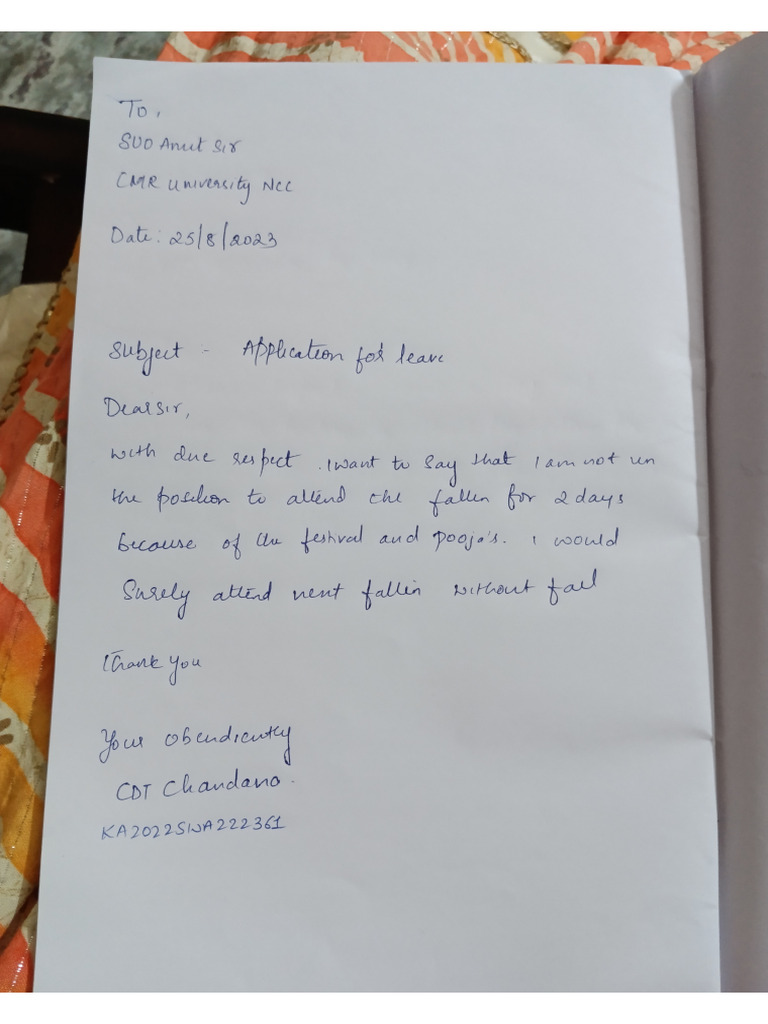 To,
SUO Amit Sir
CMR University NCC
Date: 25/8/2023
Subject :- Application for leave
Dear sir,
with due respect . i want to say that i am not un
the position to attend the fallin for 2 days
because of the festival and pooja's. i would
Surely attend next fallin without fail
Thank you
Your obendiently
CDT Chandana.
KA2022SWA222361